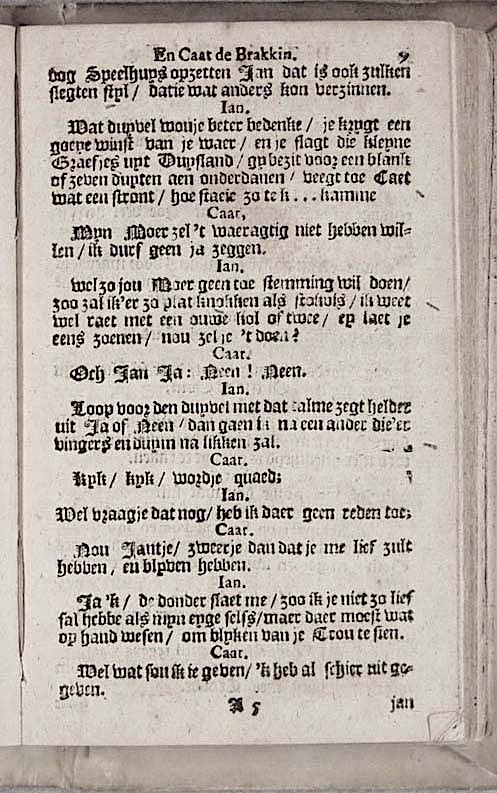 En Caat de Brakkin. 9
dog Speelhuys opzetten Jan dat is ook zulken
slegten styl / datie wat anders kon verzinnen.
Ian.
Wat duyvel wouje beter bedenke / je krygt een
goeye winst van je waer / en je slagt die kleyne
Graefjes uyt Duysland / gy bezit voor een blank
of zeven duyten aen onderdanen / veegt toe Caet
wat een stront / hoe stacie zo te k... kamme
Caat,
Myn Moer zel 't waeragtig niet hebben wil-
len / ik durf geen ja zeggen.
Ian.
wel zo jou Moer geen toe stemming wil doen /
zoo zal ik'er zo plat knokken als stokvis / ik weet
wel raet met een ouwe kol of twee / ey laet je
eens zoenen / nou zel je 't doen?
Caat.
Och Jan Ja: Neen! Neen.
Ian.
Loop voor den duyvel met dat talme zegt helder
uit Ja of Neen / dan gaen ik na een ander die'er
vingers en duym na likken zal.
Caat.
Kyk / kyk / wordje quaed;
Ian.
Wel vraagje dat nog / heb ik daer geen reden toe;
Caat.
Nou Jantje / zweerje dan dat je me lief zult
hebben / en blyven hebben.
Ian.
Ja 'k / de donder slaet me / zoo ik je niet zo lief
sal hebbe als myn eyge selfs / maer daer moest wat
op hand wesen / om blyken van je Trou te sien.
Caat.
Wel wat sou ik je geven / 'k heb al schier uit ge-
geven.
A 5 jan